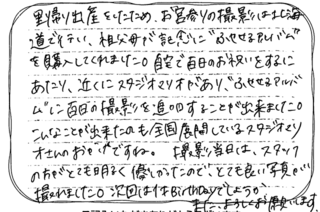 里帰り出産をしたため、お宮参りの撮影は北海
道で行い、祖父母が記念に"ふやせるアルバム"
を購入してくれました。自宅で百日のお祝いをするに
あたり、近くにスタジオマリオがあり、"ふやせるアルバ
ム"に百日の撮影を追加することが出来ました。
こんなことが出来たのも全国展開しているスタジオマリ
オさんのおかげですね。 撮影当日は、スタッフ
の方がとても明るく優しかったので、とても良い写真が
撮れました。次回は1才Birthdayでしょうか。
また、よろしくお願いします。